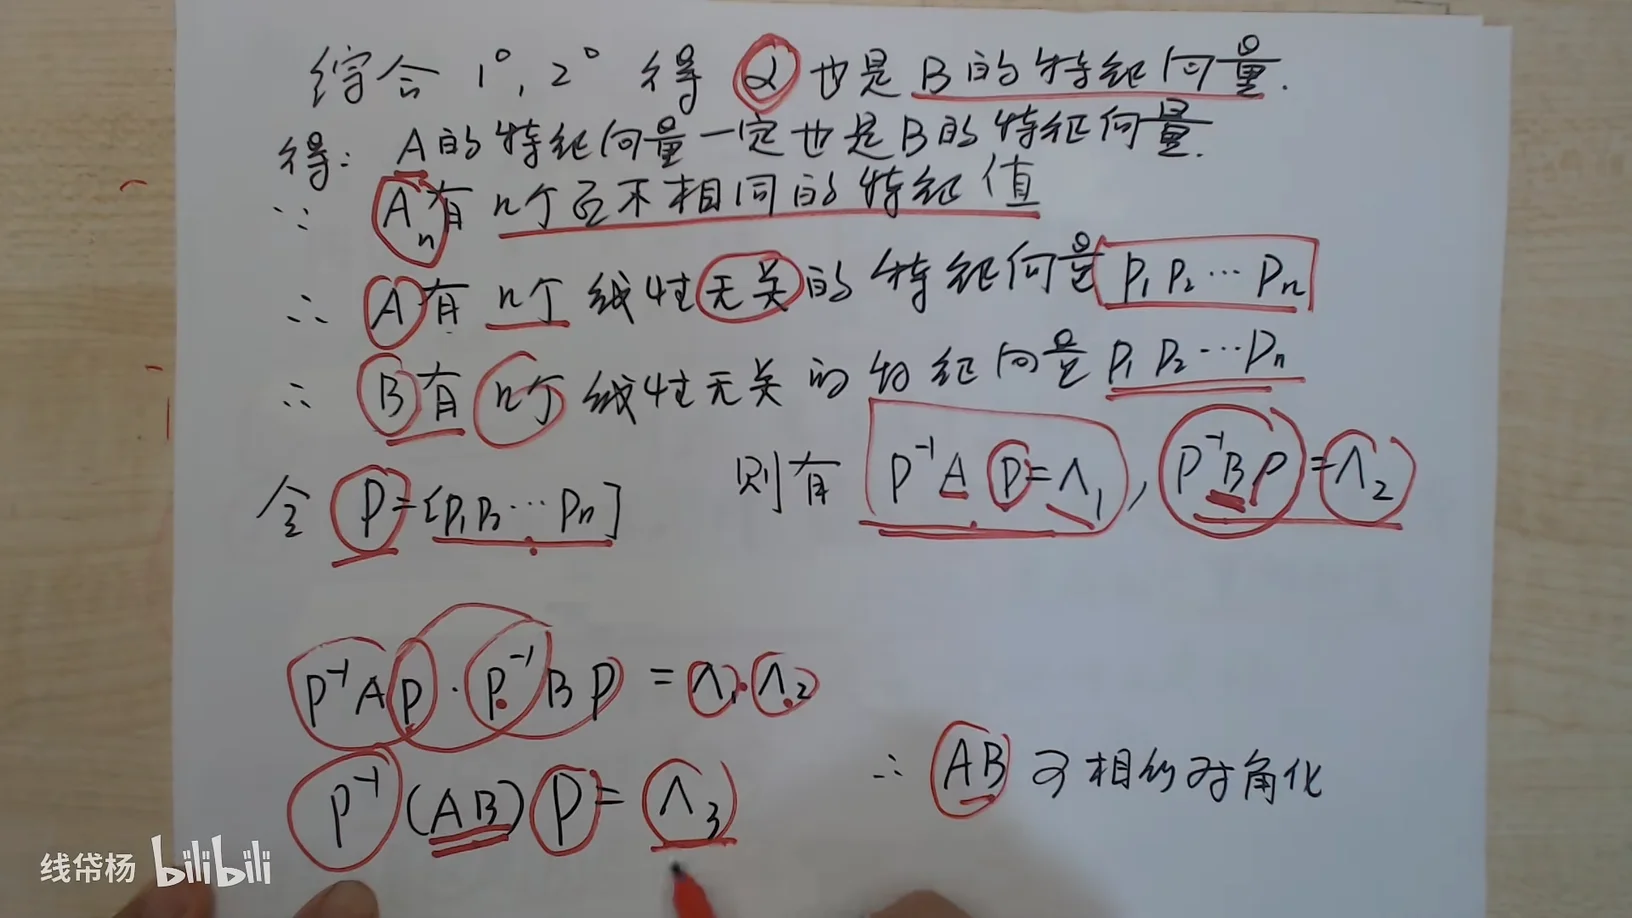 综合 1°, 2° 得 α 也是 B 的特征向量.
得: A 的特征向量一定也是 B 的特征向量.
∵ Aₙ 有 n个互不相同的特征值
∴ A 有 n个 线性无关的特征向量 p₁ p₂ ⋯ pₙ
∴ B 有 n个 线性无关的特征向量 p₁ p₂ ⋯ pₙ
令 P = [p₁ p₂ ⋯ pₙ] 则有 P⁻¹AP = Λ₁, P⁻¹BP = Λ₂
P⁻¹AP · P⁻¹BP = Λ₁·Λ₂
P⁻¹(AB)P = Λ₃ ∴ AB 可相似对角化
线帒杨 bilibili